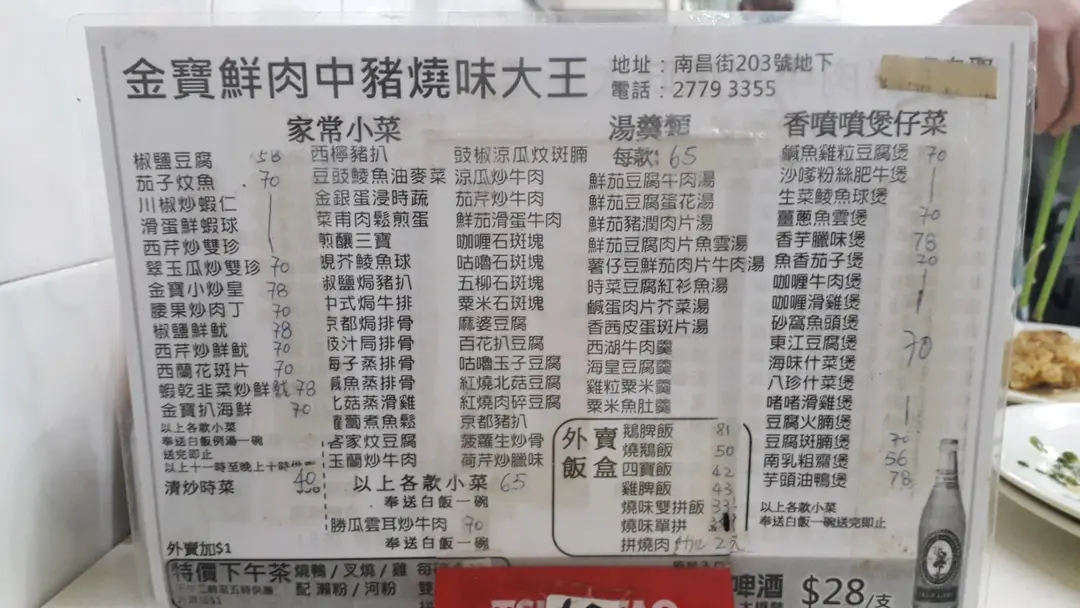 金寶鮮肉中豬燒味大王
地址：南昌街203號地下
電話：2779 3355
家常小菜
椒鹽豆腐 58
茄子炆魚 70
川椒炒蝦仁
滑蛋鮮蝦球
西芹炒雙珍
翠玉瓜炒雙珍 70
金寶小炒皇 78
腰果炒肉丁 70
椒鹽鮮魷 78
西芹炒鮮魷 70
西蘭花斑片 70
蝦乾韭菜炒鮮魷 78
金寶扒海鮮 70
以上各款小菜
奉送白飯例湯一碗
送完即止
以上十一時至晚上十時供應
清炒時菜 40
外賣加$1
西檸豬扒
豆豉鯪魚油麥菜
金銀蛋浸時蔬
菜甫肉鬆煎蛋
煎釀三寶
蜆芥鯪魚球
椒鹽焗豬扒
中式焗牛排
京都焗排骨
豉汁局排骨
梅子蒸排骨
鹹魚蒸排骨
北菇蒸滑雞
蘿蔔煮魚鬆
客家炆豆腐
玉蘭炒牛肉
豉椒涼瓜炆斑腩
涼瓜炒牛肉
茄芹炒牛肉
鮮茄滑蛋牛肉
咖喱石斑塊
咕嚕石斑塊
五柳石斑塊
粟米石斑塊
麻婆豆腐
百花扒豆腐
咕嚕玉子豆腐
紅燒北菇豆腐
紅燒肉碎豆腐
京都豬扒
菠蘿生炒骨
荷芹炒臘味
以上各款小菜 65
奉送白飯一碗
勝瓜雲耳炒牛肉 70
奉送白飯一碗
湯羹類
每款: 65
鮮茄豆腐牛肉湯
鮮茄豆腐蛋花湯
鮮茄豬潤肉片湯
鮮茄豆腐肉片魚雲湯
薯仔豆鮮茄肉片牛肉湯
時菜豆腐紅衫魚湯
鹹蛋肉片芥菜湯
香茜皮蛋斑片湯
西湖牛肉羹
海皇豆腐羹
雞粒粟米羹
粟米魚肚羹
外賣飯盒
鵝脾飯 81
燒鵝飯 50
四寶飯 42
雞脾飯 43
燒味雙拼飯
燒味單拼
拼燒肉
香噴噴煲仔菜
鹹魚雞粒豆腐煲 70
沙嗲粉絲肥牛煲
生菜鯪魚球煲
薑蔥魚雲煲 70
香芋臘味煲 78
魚香茄子煲 70
咖喱牛肉煲
咖喱滑雞煲
砂窩魚頭煲
東江豆腐煲 70
海味什菜煲
八珍什菜煲
啫啫滑雞煲
豆腐火腩煲
豆腐斑腩煲 70
南乳粗齋煲 56
芋頭油鴨煲 78
以上各款小菜
奉送白飯一碗送完即止
特價下午茶
燒鴨/叉燒/雞
配 瀨粉/河粉
啤酒 $28/支